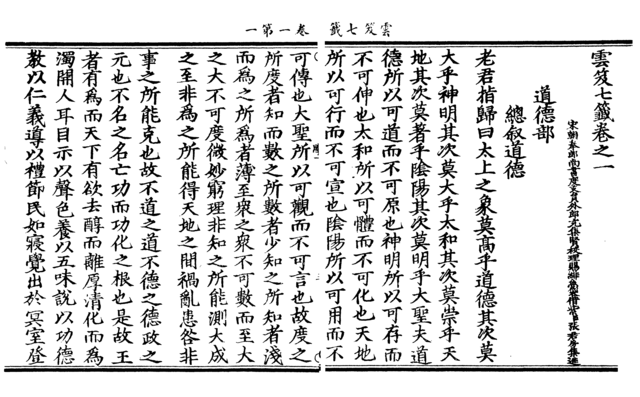 雲笈七籤 卷一第一
雲笈七籤卷之一
宋朝奉郎尚書度支員外郎充集賢校理賜緋魚袋借紫臣張君房集進
道德部
總叙道德
老君指歸曰太上之象莫高乎道德其次莫
大乎神明其次莫大乎太和其次莫崇乎天
地其次莫著乎陰陽其次莫明乎大聖夫道
德所以可道而不可原也神明所以可存而
不可伸也太和所以可體而不可化也天地
所以可行而不可宣也陰陽所以可用而不
可傳也大聖所以可觀而不可言也故度之
所度者知而數之所數者少知之所知者淺
而為之所為者薄至衆之衆不可數而至大
之大不可度微妙窮理非知之所能測大成
之至非為之所能得天地之間禍亂患咎非
事之所能克也故不道之道不德之德政之
元也不名之名亡功而功化之根也是故王
者有為而天下有欲去醇而離厚清化而為
濁開人耳目示以聲色養以五味說以功德
教以仁義導以禮節民如寢覺出於冥室登